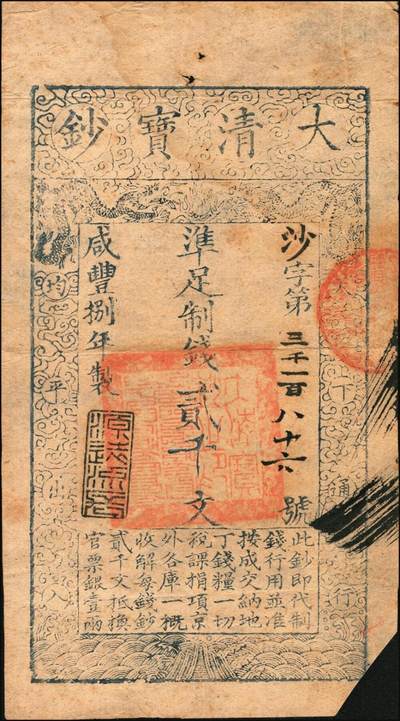 大清寶鈔
沙字第三千一百八十六號
準足制錢貳千文
咸豐捌年製
天下通行
均平出入
此鈔即代制
錢行用並准
按成交納地
丁錢糧一切
稅課捐項京
外各庫一概
收解每錢鈔
貳千文抵換
官票銀壹兩